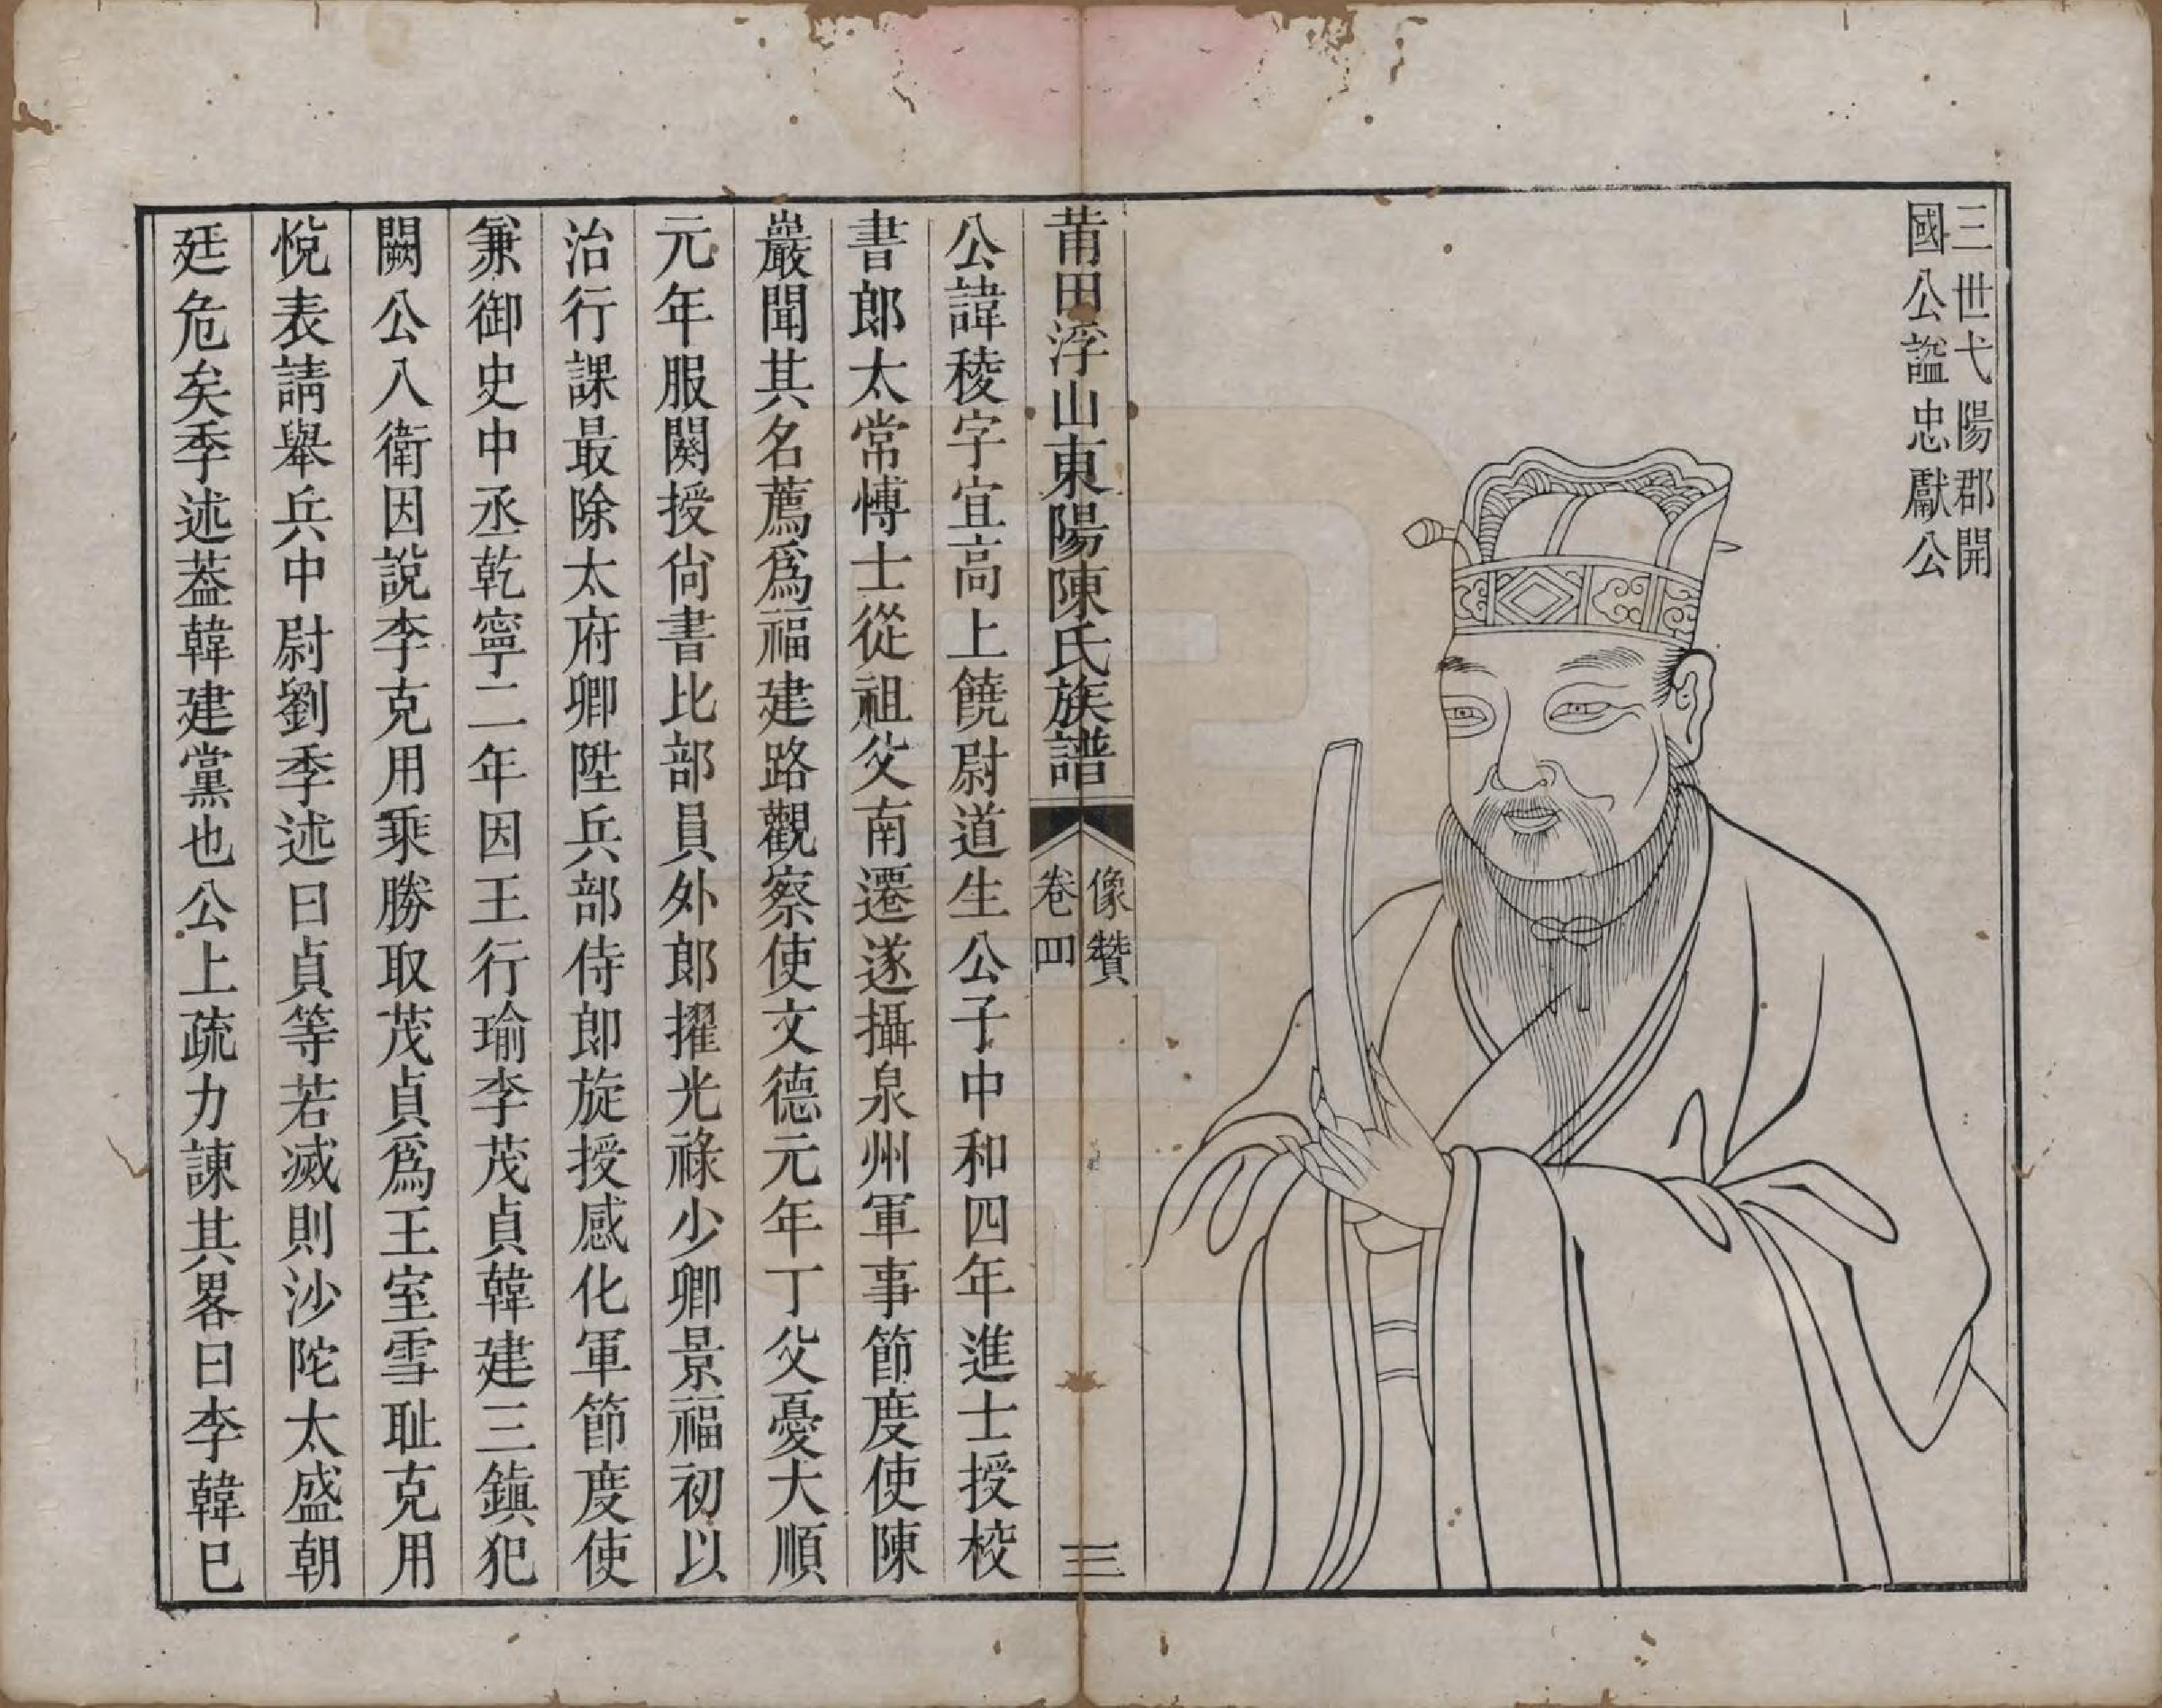 三世弋陽郡開
國公諡忠獻公
莆田浮山東陽陳氏族譜
像贊
卷四
三
公諱稜字宜高上饒尉道生公子中和四年進士授校
書郎太常博士從祖父南遷遂攝泉州軍事節度使陳
巖聞其名薦爲福建路觀察使文德元年丁父憂大順
元年服闋授尙書比部員外郎擢光祿少卿景福初以
治行課最除太府卿陞兵部侍郎旋授感化軍節度使
兼御史中丞乾寧二年因王行瑜李茂貞韓建三鎭犯
闕公入衛因說李克用乘勝取茂貞爲王室雪耻克用
悅表請舉兵中尉劉季述曰貞等若滅則沙陀太盛朝
廷危矣季述葢韓建黨也公上疏力諫其畧曰李韓巳